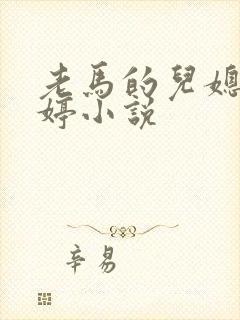 老馬的兒媳
婷小説
辛易